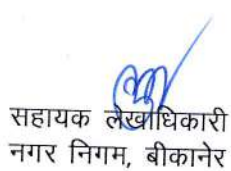 सहायक लेखाधिकारी
नगर निगम, बीकानेर